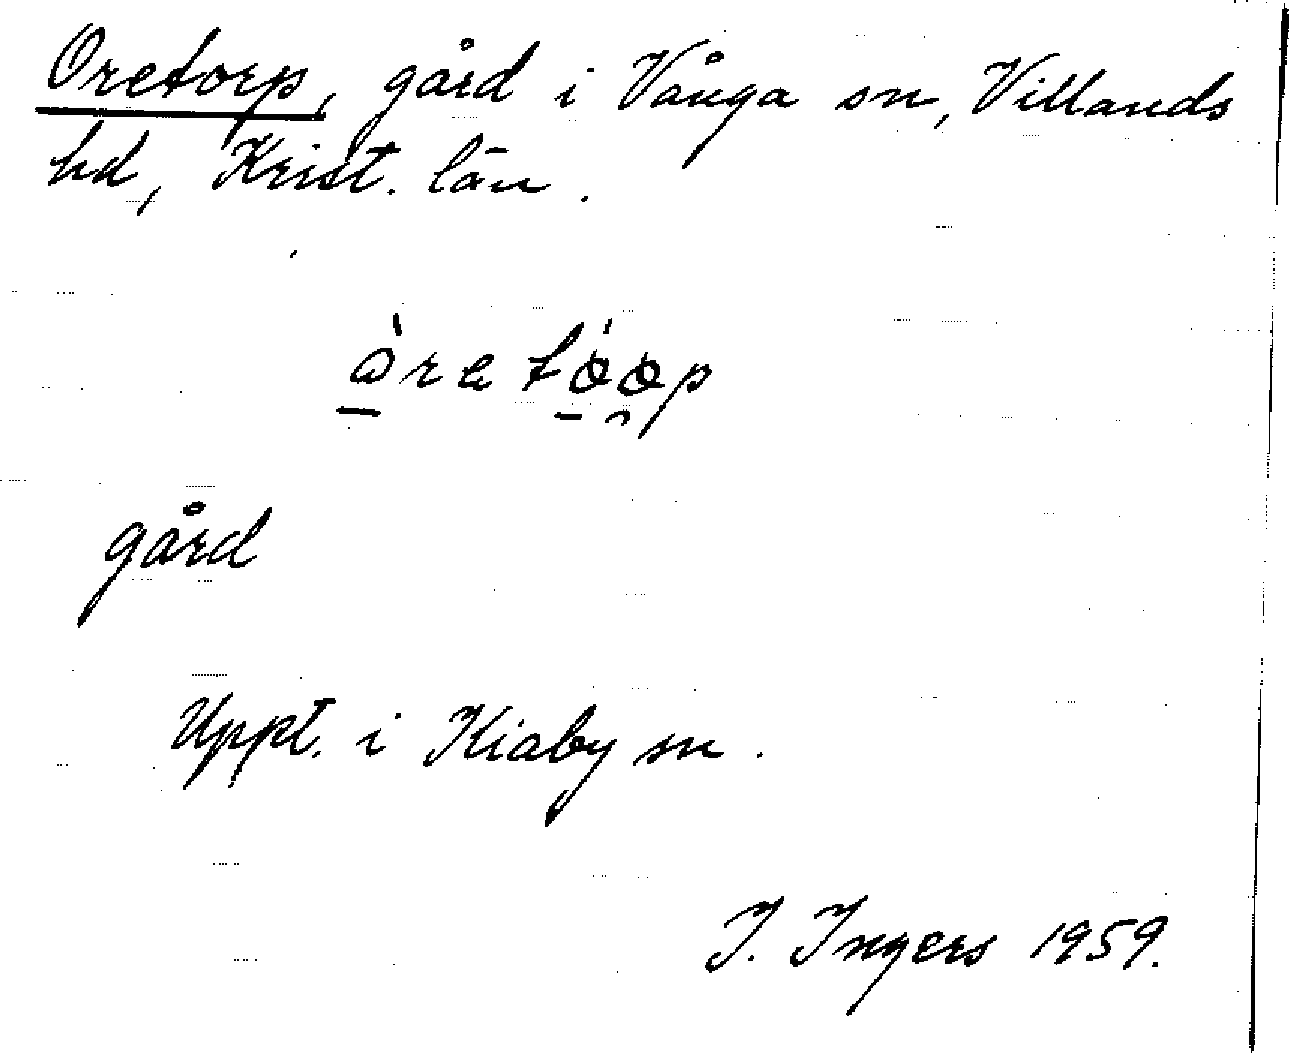 Oretorp, gård i Vånga sn, Villands
hd, Krist. län.
gård
Uppt. i Kiaby sn.
I. Ingers 1959.